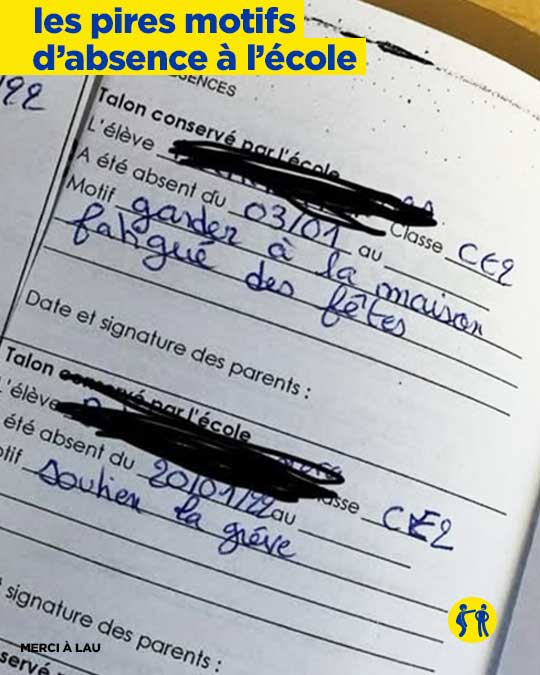 les pires motifs
d'absence à l'école
92
Talon conservé par l'école
L'élève
A été absent du 03/01 au
Classe CE2
Motif garder à la maison
fatigué des fêtes
Date et signature des parents :
Talon conservé par l'école
L'élève
été absent du 20/01/22 au
Classe CE2
otif soutien la grève
signature des parents :
MERCI À LAU